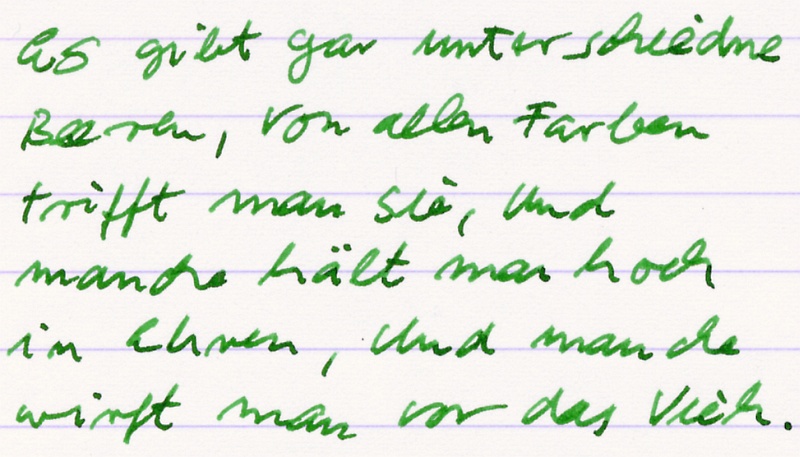 Es gibt gar unterschiedne
Beeren, von allen Farben
trifft man sie, und
manche hält man hoch
in Ehren, und manche
wirft man vor das Vieh.